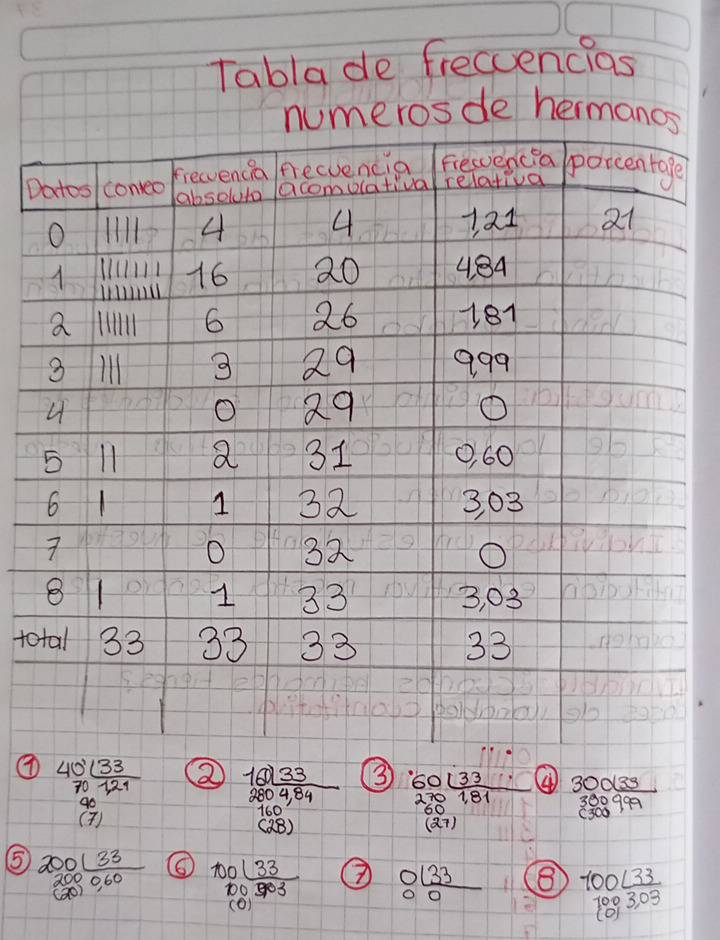 Tabla de frecuencias
numeros de hermanos
Datos conteo frecuencia absoluta frecuencia acomulativa frecuencia relativa porcentage
0 IIIII 4 4 1,21 21
1 16 20 4,84
2 IIIIII 6 26 1,81
3 III 3 29 9,99
4 0 29 0
5 II 2 31 0,60
6 I 1 32 3,03
7 0 32 0
8 I 1 33 3,03
total 33 33 33 33
① 40 33 ② 160 33 ③ 60 33 ④ 300 33
70 1,21 280 4,84 270 1,81 300 999
40 160 60 (300
(7) (28) (27)
⑤ 200 33 ⑥ 100 33 ⑦ 0 33 ⑧ 100 33
200 0,60 100 3,03 0 0 100 3,03
(20) (0) (0)